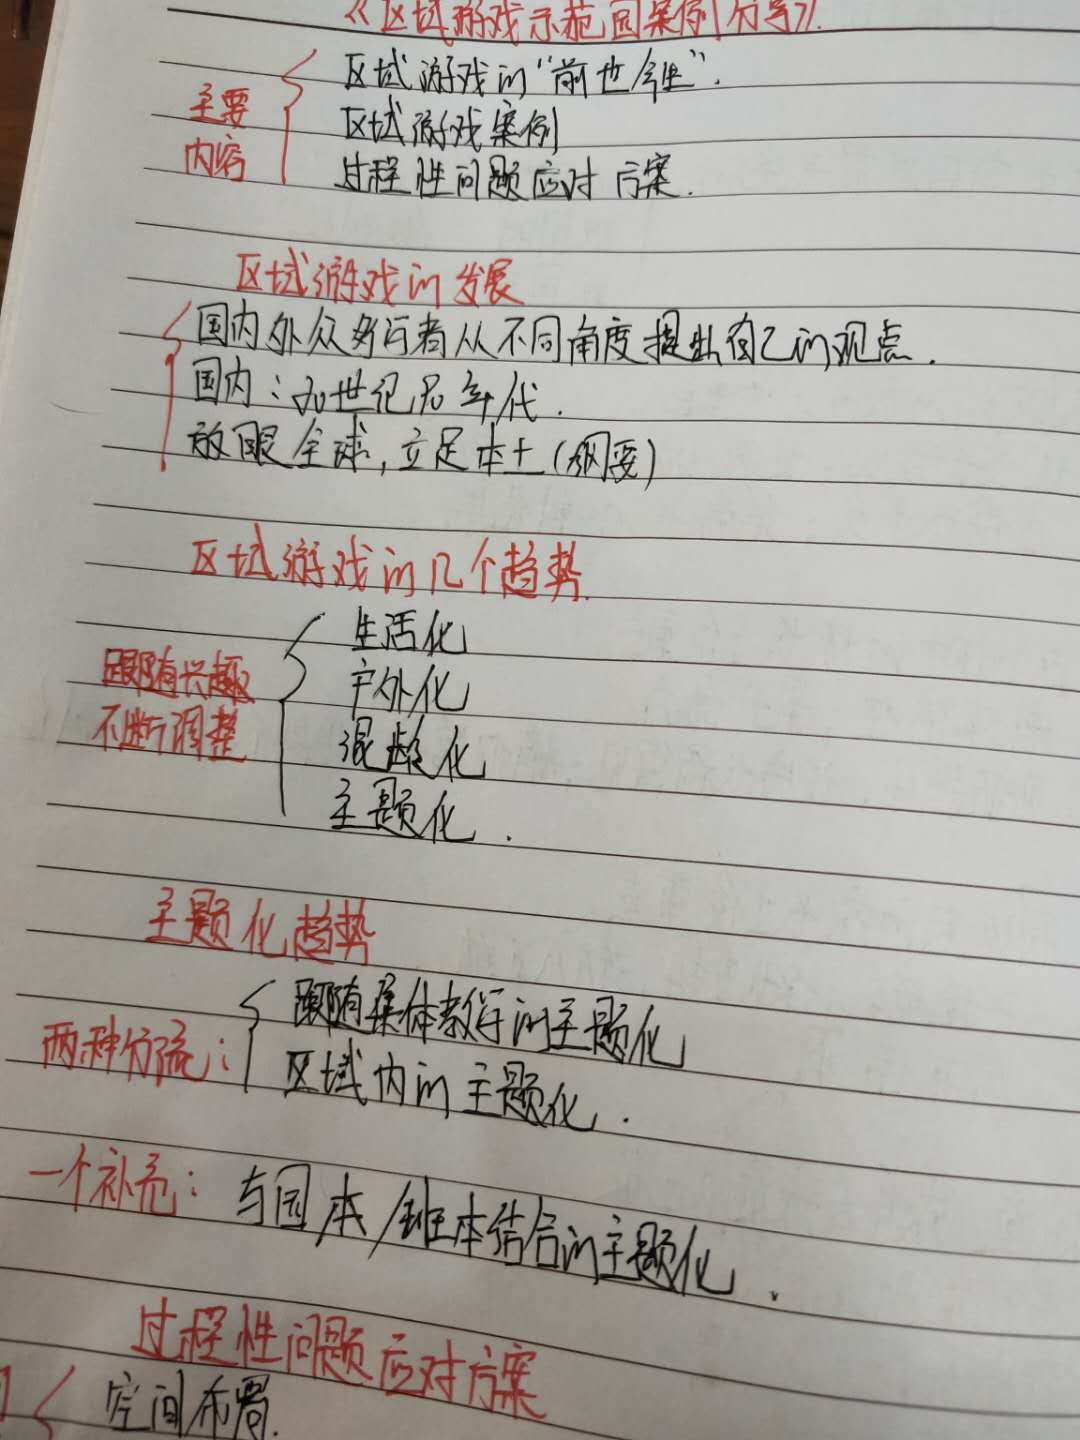 《区域游戏示范园案例分享》
区域游戏的“前世今生”.
主要
内容
区域游戏案例
过程性问题应对方案.
区域游戏的发展
国内外众多学者从不同角度提出自己的观点.
国内:20世纪80年代.
放眼全球,立足本土(纲要)
区域游戏的几个趋势.
跟随兴趣
不断调整
生活化
户外化
混龄化
主题化.
主题化趋势
两种分流:
跟随集体教学的主题化
区域内的主题化.
一个补充: 与园本/班本结合的主题化.
过程性问题应对方案
空间布局.